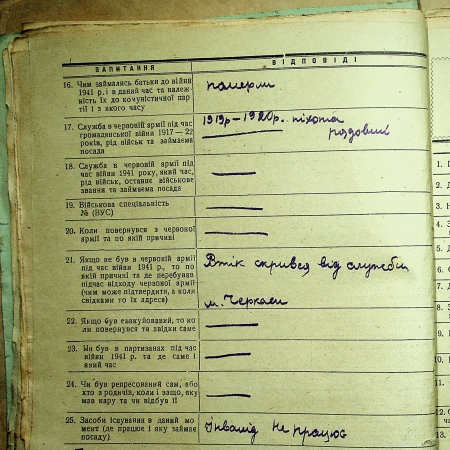 ЗАПИТАННЯ
ВІДПОВІДІ
16. Чим займались батьки до війни
1941 р. і в даний час та належ-
ність їх до комуністичної пар-
тії і з якого часу
померли
17. Служба в червоній армії під час
громадянської війни 1917 — 22
років, рід військ та займаєма
посада
1919р – 1920р. піхота
рядовий
18. Служба в червоній армії під
час війни 1941 року, який час,
рід військ, останнє військове
звання та займаєма посада
—
19. Військова спеціальність
№ (ВУС)
—
20. Коли повернувся з червоної
армії та по якій причині
—
21. Якщо не був в червоній армії
під час війни 1941 р., то по
якій причині та де перебував
підчас відходу червоної армії
(чим може підтвердити, а коли
свідками то їх адреса)
Втік скривсь від служби
м. Черкаси
22. Якщо був евакуйований, то ко
ли повернувся та звідки саме
—
23. Чи був в партизанах під час
війни 1941 р. та де саме і
який час
—
24. Чи був репресований сам, або
хто з родичів, коли і защо, яку
мав кару та чи відбув її
—
25. Засоби існування в даний мо
мент (де працює і яку займає
посаду)
Інвалід не працює
1.
2.
3.
4.
5.
6.
7.
8.
9.
10.
11.
12.
13.